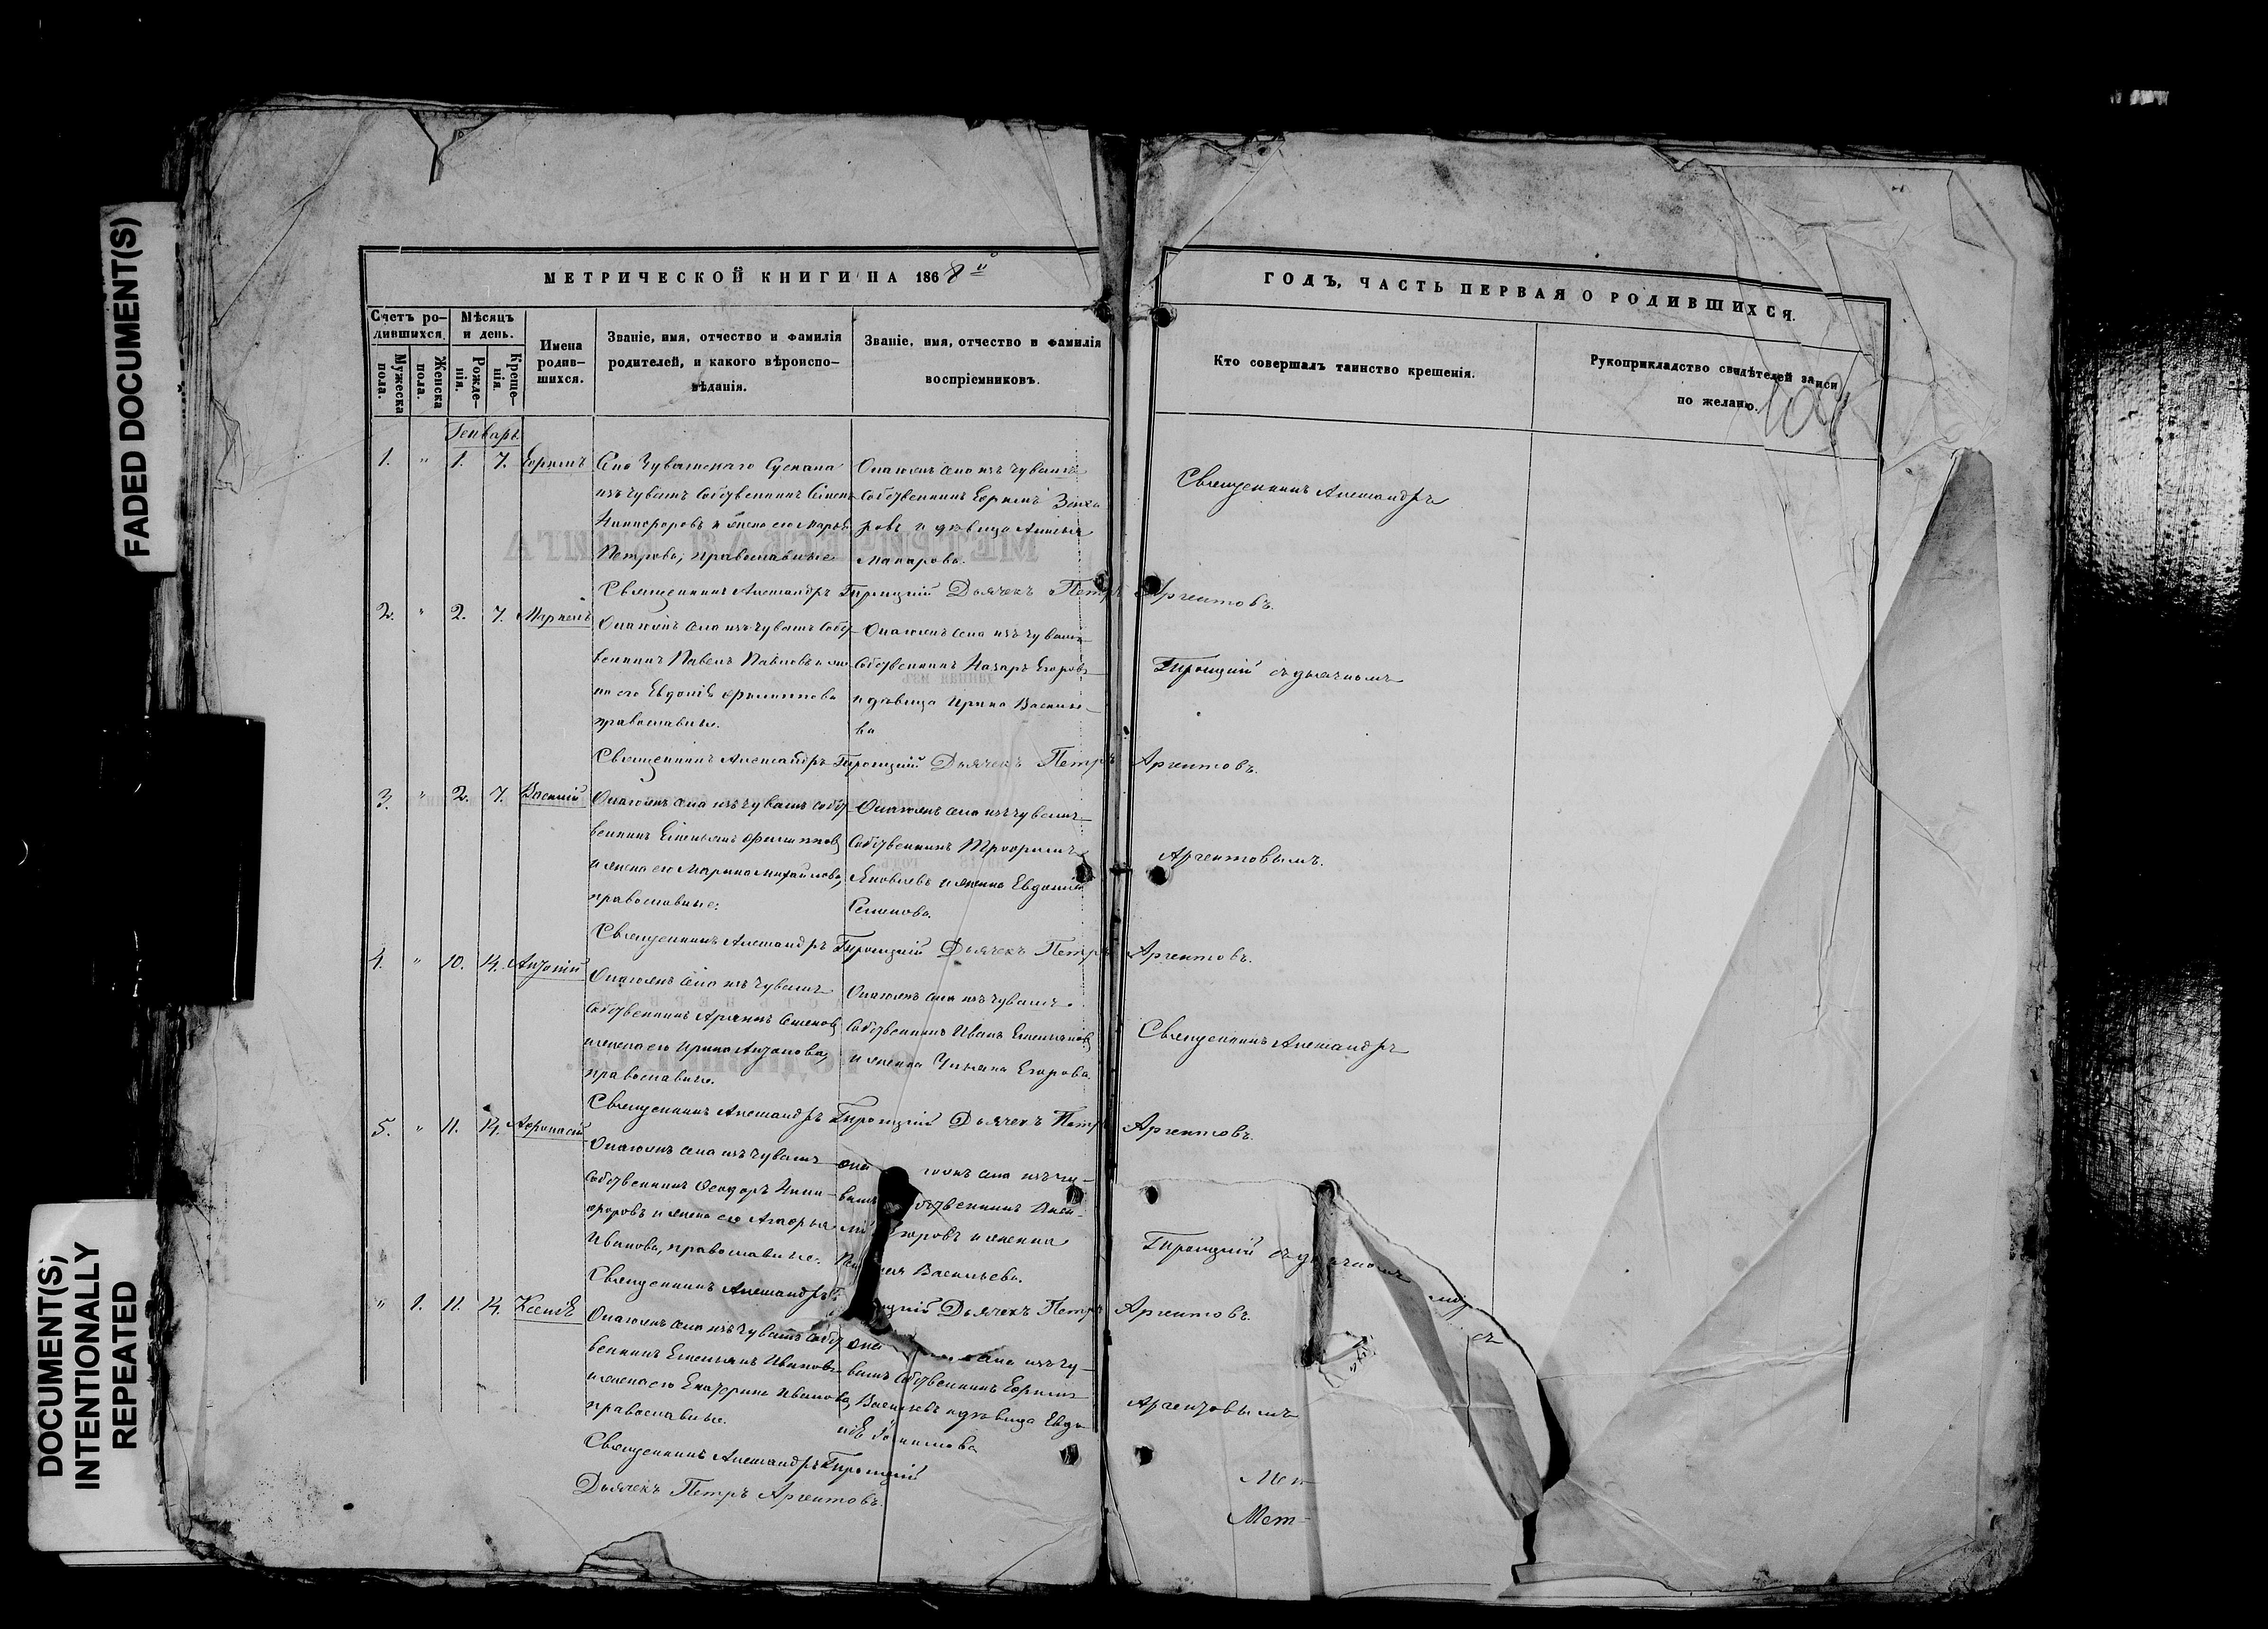 FADED DOCUMENT(S)
DOCUMENT(S)
INTENTIONALLY
REPEATED
МЕТРИЧЕСКОЙ КНИГИ НА 1868й
ГОДЪ, ЧАСТЬ ПЕРВАЯ О РОДИВШИХСЯ.
Счетъ ро-
дившихся.
Мужеска
пола.
Женска
пола.
Мѣсяцъ
и день.
Рожде-
нія.
Креще-
нія.
Имена
родив-
шихся.
Званіе, имя, отчество и фамилія
родителей, и какого вѣроиспо-
вѣданія.
Званіе, имя, отчество и фамилія
воспріемниковъ.
Кто совершалъ таинство крещенія.
Рукоприкладство свидѣтелей записи
по желанію.
Генварь
1. " 1. 7. Ефримъ
Села Чувашскаго
изъ чувашъ собственникъ
Никифоровъ и жена его Марья
Петрова, православные
Онагожъ села изъ чувашъ
собственникъ Ефримъ Заха
ровъ и дѣвица
Макарова.
Священникъ Александръ
Священникъ Александръ Троицкій Дьячекъ Петръ Аргентовъ.
2. " 2. 7. Маркелъ
Онагожъ села изъ чувашъ собст
венникъ Павелъ Павловъ и же
на его Евдокія Филиппова
православные.
Онагожъ села изъ чувашъ
собственникъ Назаръ Егоровъ
и дѣвица Ирина Василье
ва
Троицкій съ дьячкомъ
Священникъ Александръ Троицкій Дьячекъ Петръ Аргентовъ.
3. " 2. 7. Василій
Онагожъ села изъ чувашъ собст
венникъ Емельянъ Филипповъ
и жена его Марина Михайлова,
православные.
Онагожъ села изъ чувашъ
собственникъ Трофимъ
Яковлевъ и женка Евдокія
Семенова.
Аргентовымъ.
Священникъ Александръ Троицкій Дьячекъ Петръ Аргентовъ.
4. " 10. 14. Антоній
Онагожъ села изъ чувашъ
собственникъ Семеновъ
и жена его Ирина Антонова,
православные.
Онагожъ села изъ чувашъ
собственникъ Иванъ Емельяновъ
и женка Ульяна Егорова.
Священникъ Александръ
Священникъ Александръ Троицкій Дьячекъ Петръ Аргентовъ.
5. " 11. 14. Афонасій
Онагожъ села изъ чувашъ
собственникъ Ѳеодоръ Ники-
форовъ и жена его Агафья
Иванова, православные.
она гожъ села изъ чу-
вашъ
Егоровъ и женка
Васильева.
Троицкій съ дьячкомъ
Священникъ Александръ Троицкій Дьячекъ Петръ Аргентовъ.
" 1. 11. 14. Ксенія
Онагожъ села изъ чувашъ собст
венникъ Емельянъ Ивановъ
и жена его Екатерина Иванова,
православные.
она села изъ чу-
вашъ собственникъ Ефримъ
Васильевъ и дѣвица Евдо
кія
Аргентовымъ
Священникъ Александръ Троицкій
Дьячекъ Петръ Аргентовъ.
Мет-